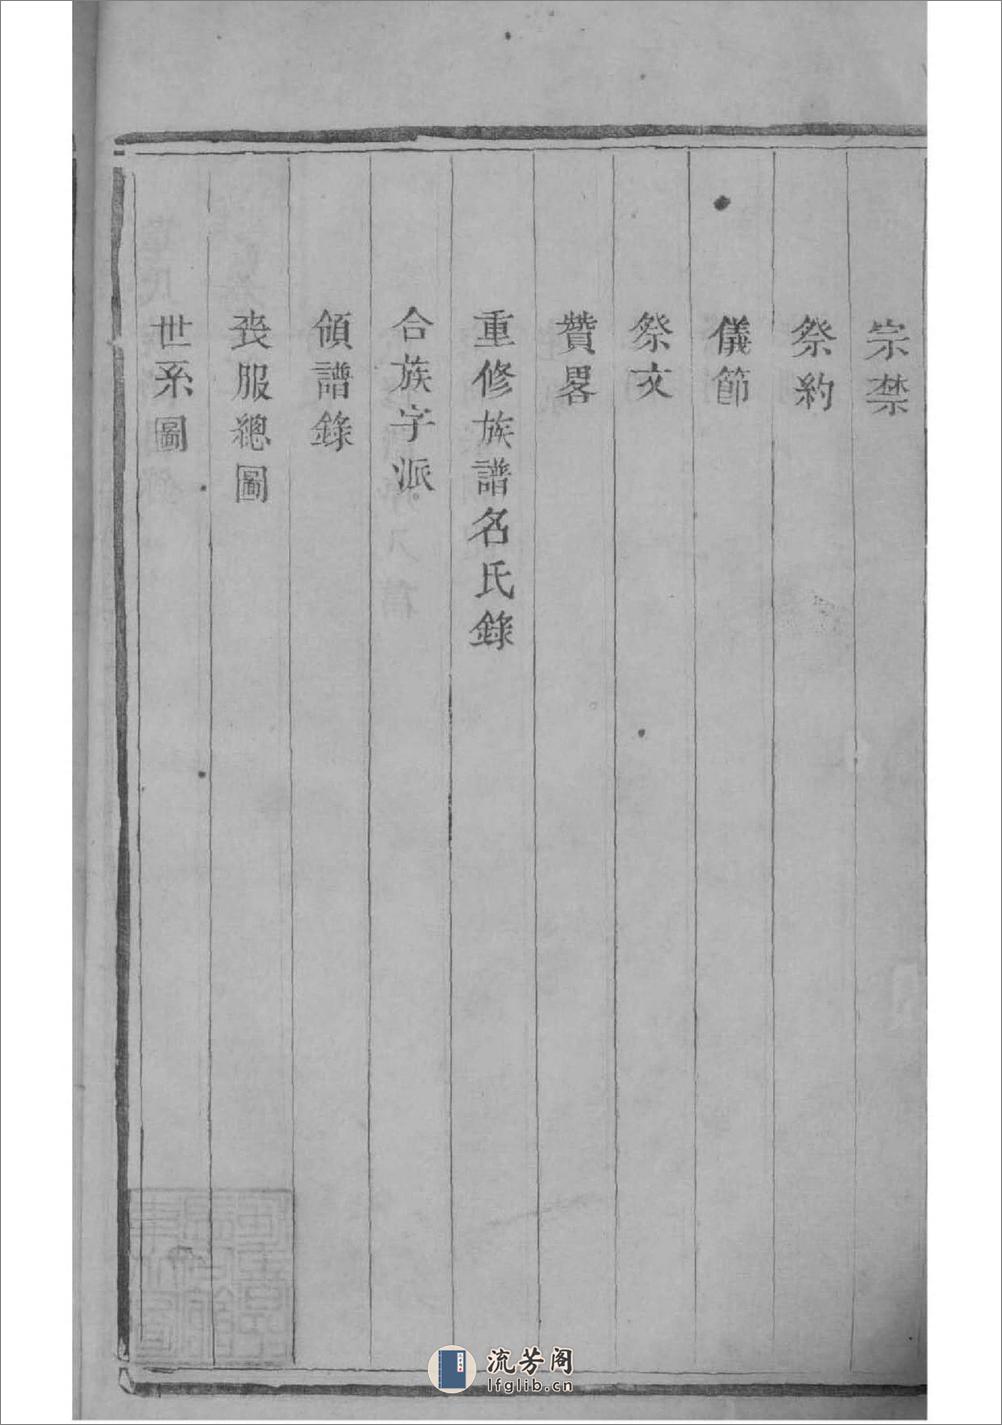 宗禁
祭約
儀節
祭文
贊畧
重修族譜名氏錄
合族字派
領譜錄
喪服總圖
世系圖
流芳阁
lfglib.cn